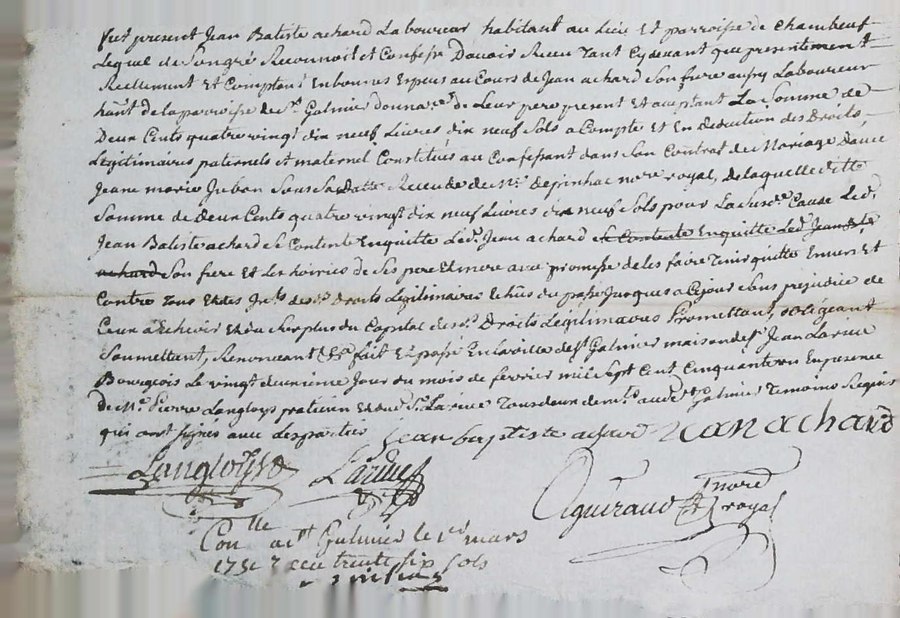 Fut present Jean Batiste achard Laboureur habitant au Lieu Et parroisse de Chambeuf
Lequel de Songré Reconnoit et Confesse Davoir Receu Tant Cydevant que presentement
Reellement Et Comptant Enbonnes Especes au Cours de Jean achard Son frere aussy Laboureur
habt. de la parroisse de St. Galmier donnatre. de Leur pere present Et acceptant La Somme de
Deux Cents quatre vingt dix neuf Livres dix neuf Sols a Compte Et En Deduction des Droits
Légitimaires paternels et maternel Constitués au Confessant dans Son Contrat de Mariage Davec
Jeane marie Juban Sous Sa Datte Receu de Me. Depinhac nore royal, de laquelle ditte
Somme de deux Cents quatre vingt dix neuf Livres dix neuf Sols pour La Susd. Cause Led.
Jean Batiste achard Se Contente Enquitte Led. Jean achard se Contente Enquitte Led. Jean Bte
achard Son frere Et Les hoiries de Ses pere Et mere avec promesse de les faire Tenir quitte Envers Et
Contre Tous Et des Jnts. desd. Droits Légitimaires Echus du passé Jusques a Cejour Sans prejudice de
Ceux a Echeoir Et du Surplus du Capital desd. Droits Légitimaires Promettant, obligeant
Soumettant, Renonceant &a. fait Et passé En la ville de St. Galmier maison de Sr. Jean Larue
Bourgeois Le vingt deuxieme Jour du mois de fevrier mil Sept Cent Cinquante un En presence
De Me. Pierre Langloys praticien Et dud. Sr. Larue Tous deux demts. aud. St. Galmier Temoins Requis
qui ont signés avec Les parties
Jean baptiste achard Jean achard
Langloys Larue
Aguiraud nore royal
Conlle a St. Galmier le 1er mars
1751 R ceu trente six sols